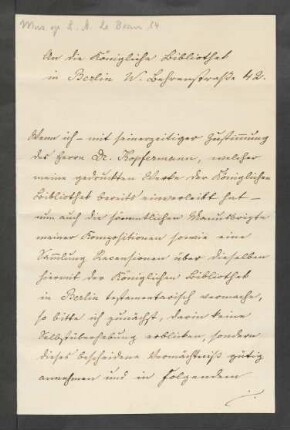 An die Königliche Bibliothek
in Berlin W. Behrenstraße 42.
Wenn ich – mit seinerzeitiger Zustimmung
des Herrn Dr. Kopfermann, welcher
meine gedruckten Werke der Königlichen
Bibliothek bereits einverleibt hat –
nun auch die sämmtlichen Manuskripte
meiner Kompositionen sowie eine
Sammlung Recensionen über dieselben
hiermit der Königlichen Bibliothek
in Berlin testamentarisch vermache,
so bitte ich zunächst, darin keine
Selbstüberhebung erblicken, sondern
dieses bescheidene Vermächtniß gütig
annehmen und in Folgendem